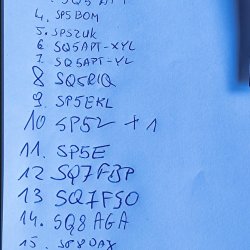 4. SP5BOM
5. SP5ZUK
6 SQ5APT-XYL
7. SQ5APT-YL
8 SQ5RIQ
9. SP5EKL
10 SP5Z + 1
11. SP5E
12 SQ7FBP
13 SQ7FSO
14. SQ8AGA
15.